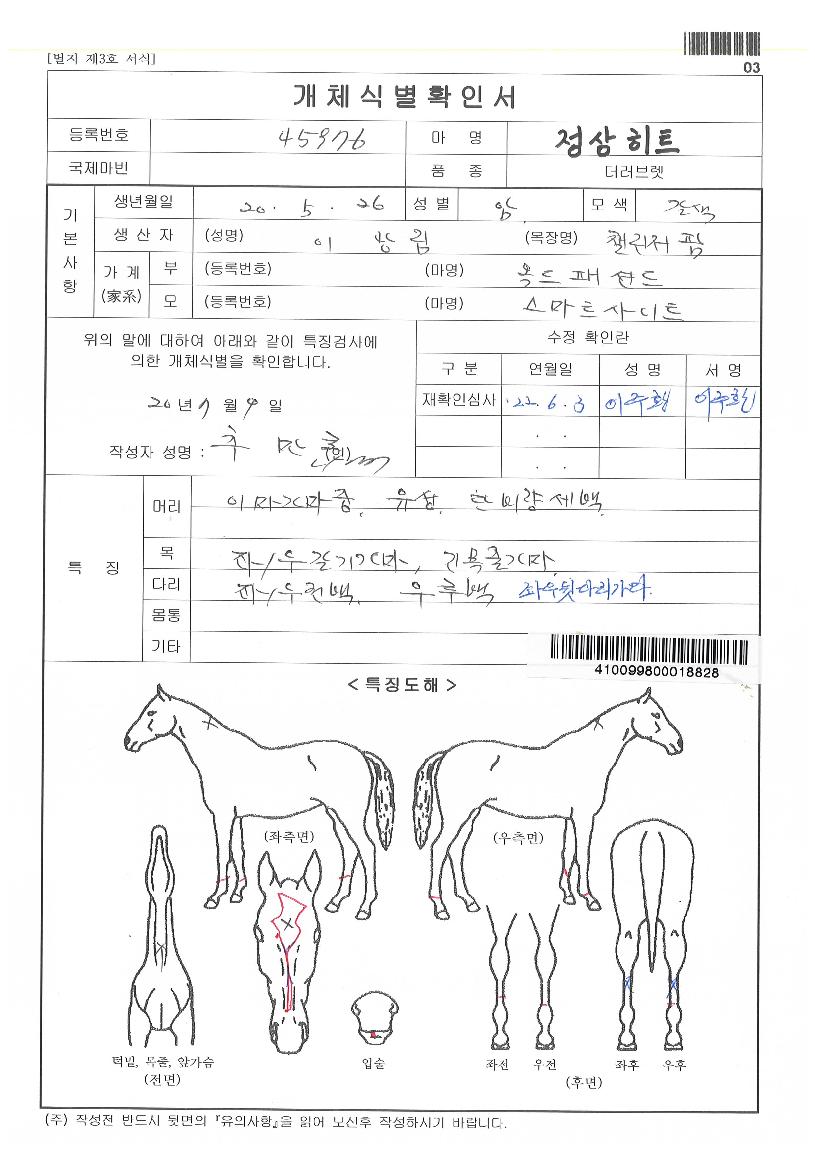 [별지 제3호 서식]
03
개체식별확인서
등록번호 45976 마 명 정상히트
국제마빈 품 종 더러브렛
기본사항
생년월일 20. 5. 26 성별 암 모색 갈색
생 산 자 (성명) 이 상 림 (목장명) 챌린저 팜
가 계 (家系) 부 (등록번호) (마명) 옥드패션드
모 (등록번호) (마명) 스마트사디트
위의 말에 대하여 아래와 같이 특징검사에
의한 개체식별을 확인합니다.
20 년 7 월 9 일
작성자 성명 : 추 만
수정 확인란
구 분 연월일 성 명 서 명
재확인심사 22. 6. 3
. .
. .
특 징
머리 이마가마중, 유성, 단비량세백
목 좌/우갈기가마, 기목줄가마
다리 좌/우전백, 우후백 좌우뒷다리가마
몸통
기타
410099800018828
<특징도해>
(좌측면) (우측면)
턱밑, 목줄, 앞가슴
(전면)
입술
좌전 우전 좌후 우후
(후면)
(주) 작성전 반드시 뒷면의 『유의사항』을 읽어 보신후 작성하시기 바랍니다.